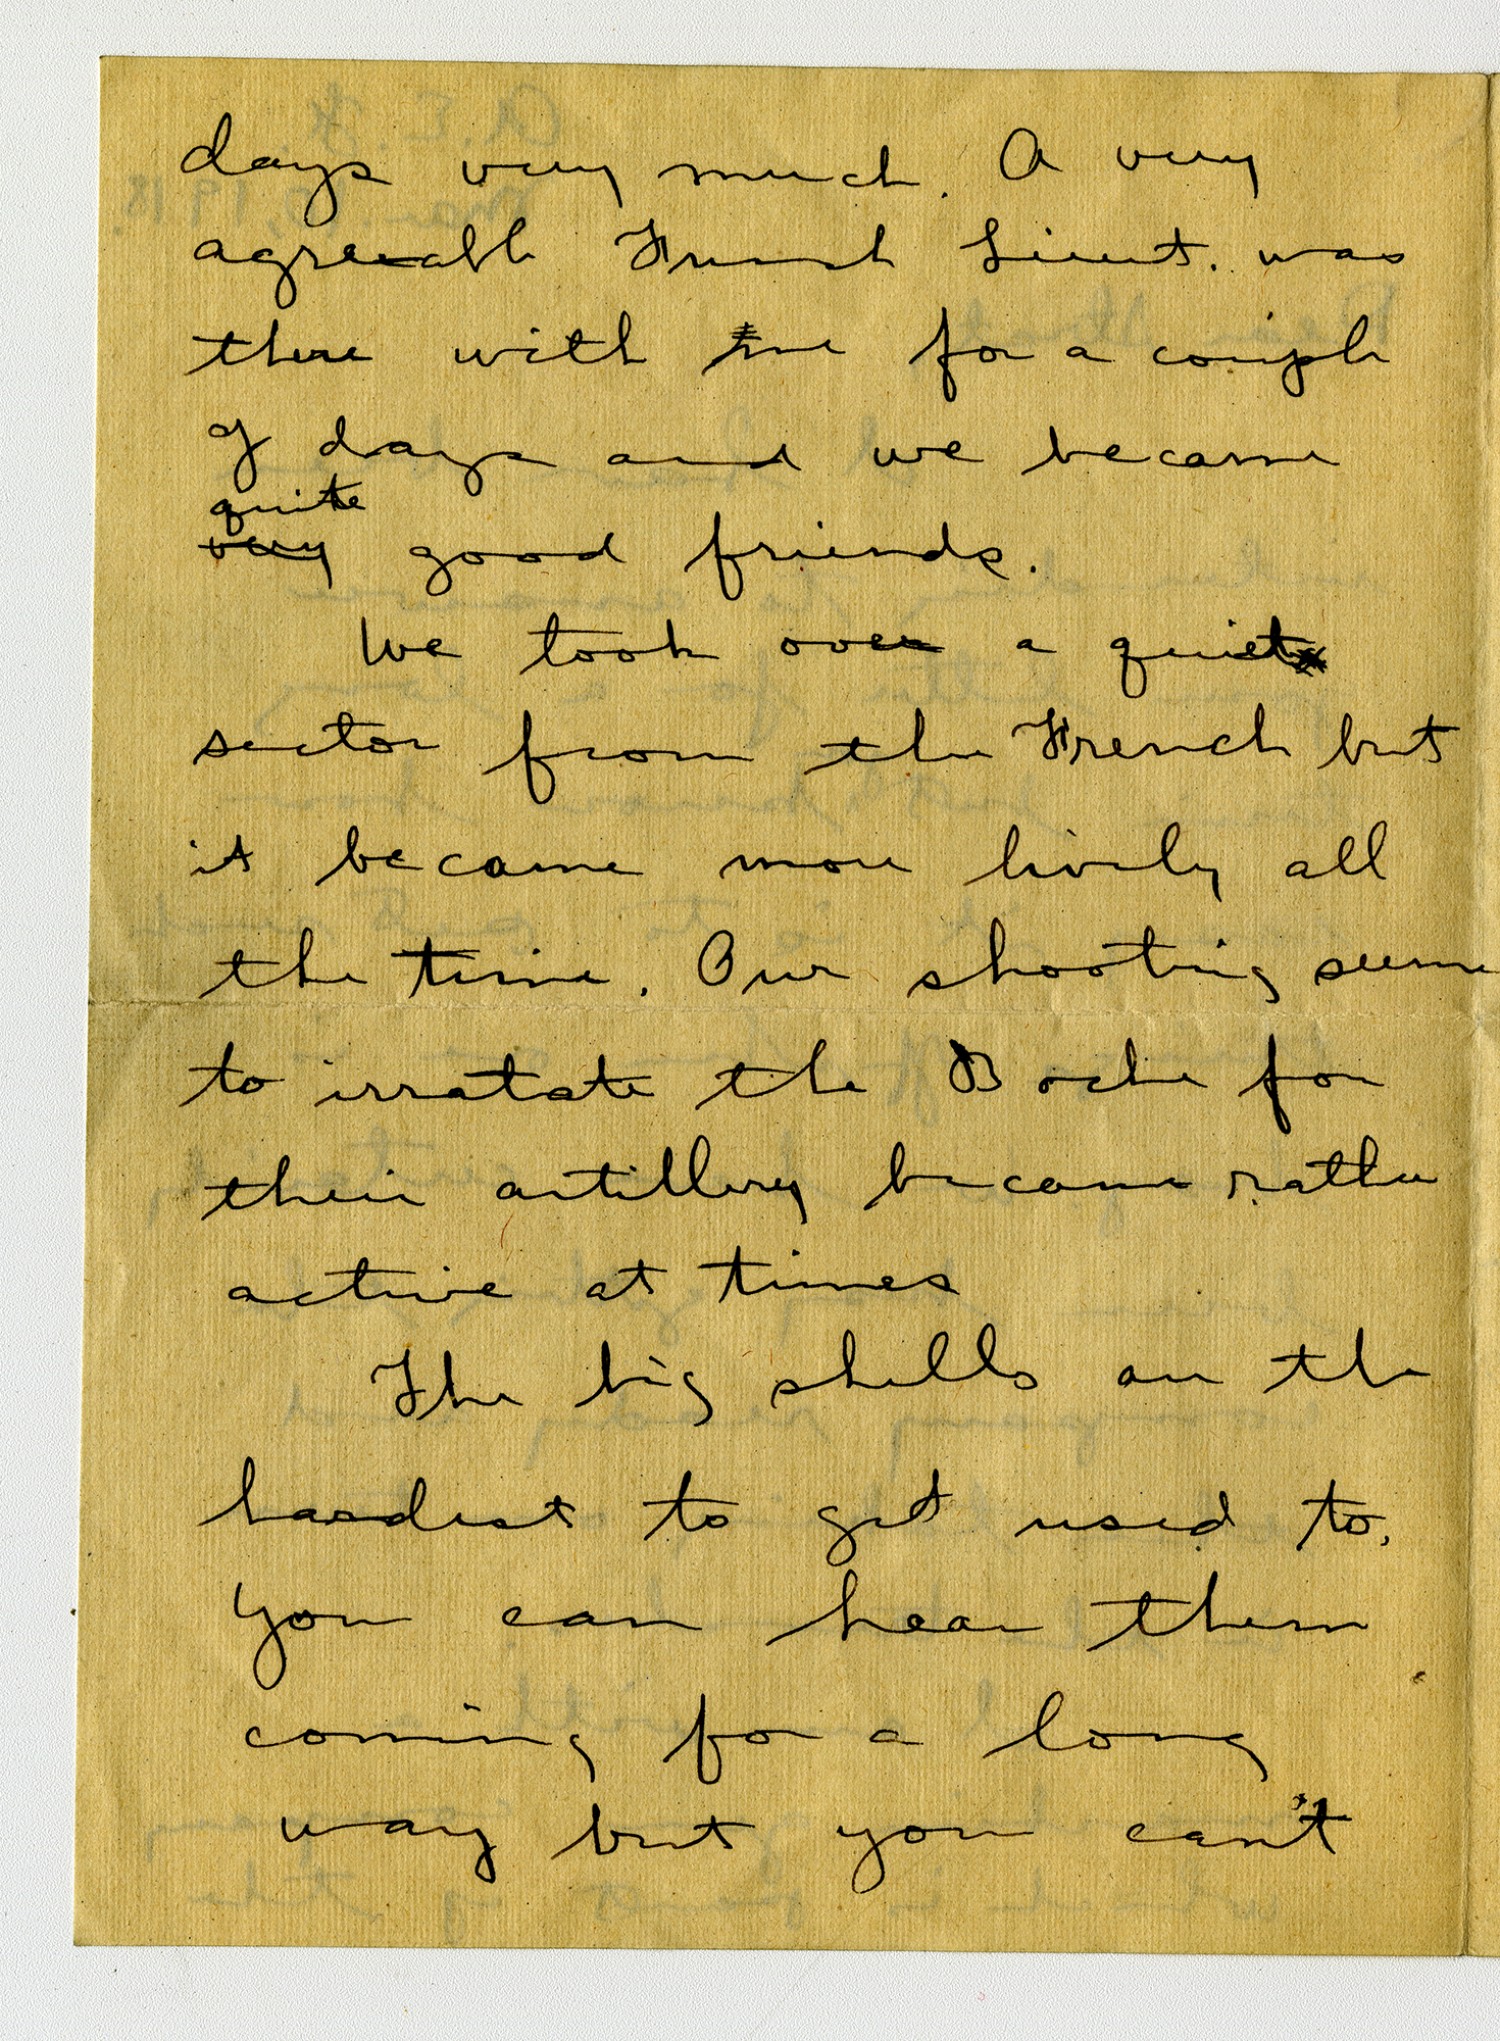 days very much. A very
agreeable French Lieut. was
there with me for a couple
of days and we became
quite
very good friends.
We took over a quiet
sector from the French but
it became more lively all
the time. Our shooting seems
to irratate the Boche for
their artillery became rather
active at times
The big shells are the
hardest to get used to.
You can hear them
coming for a long
way but you can't